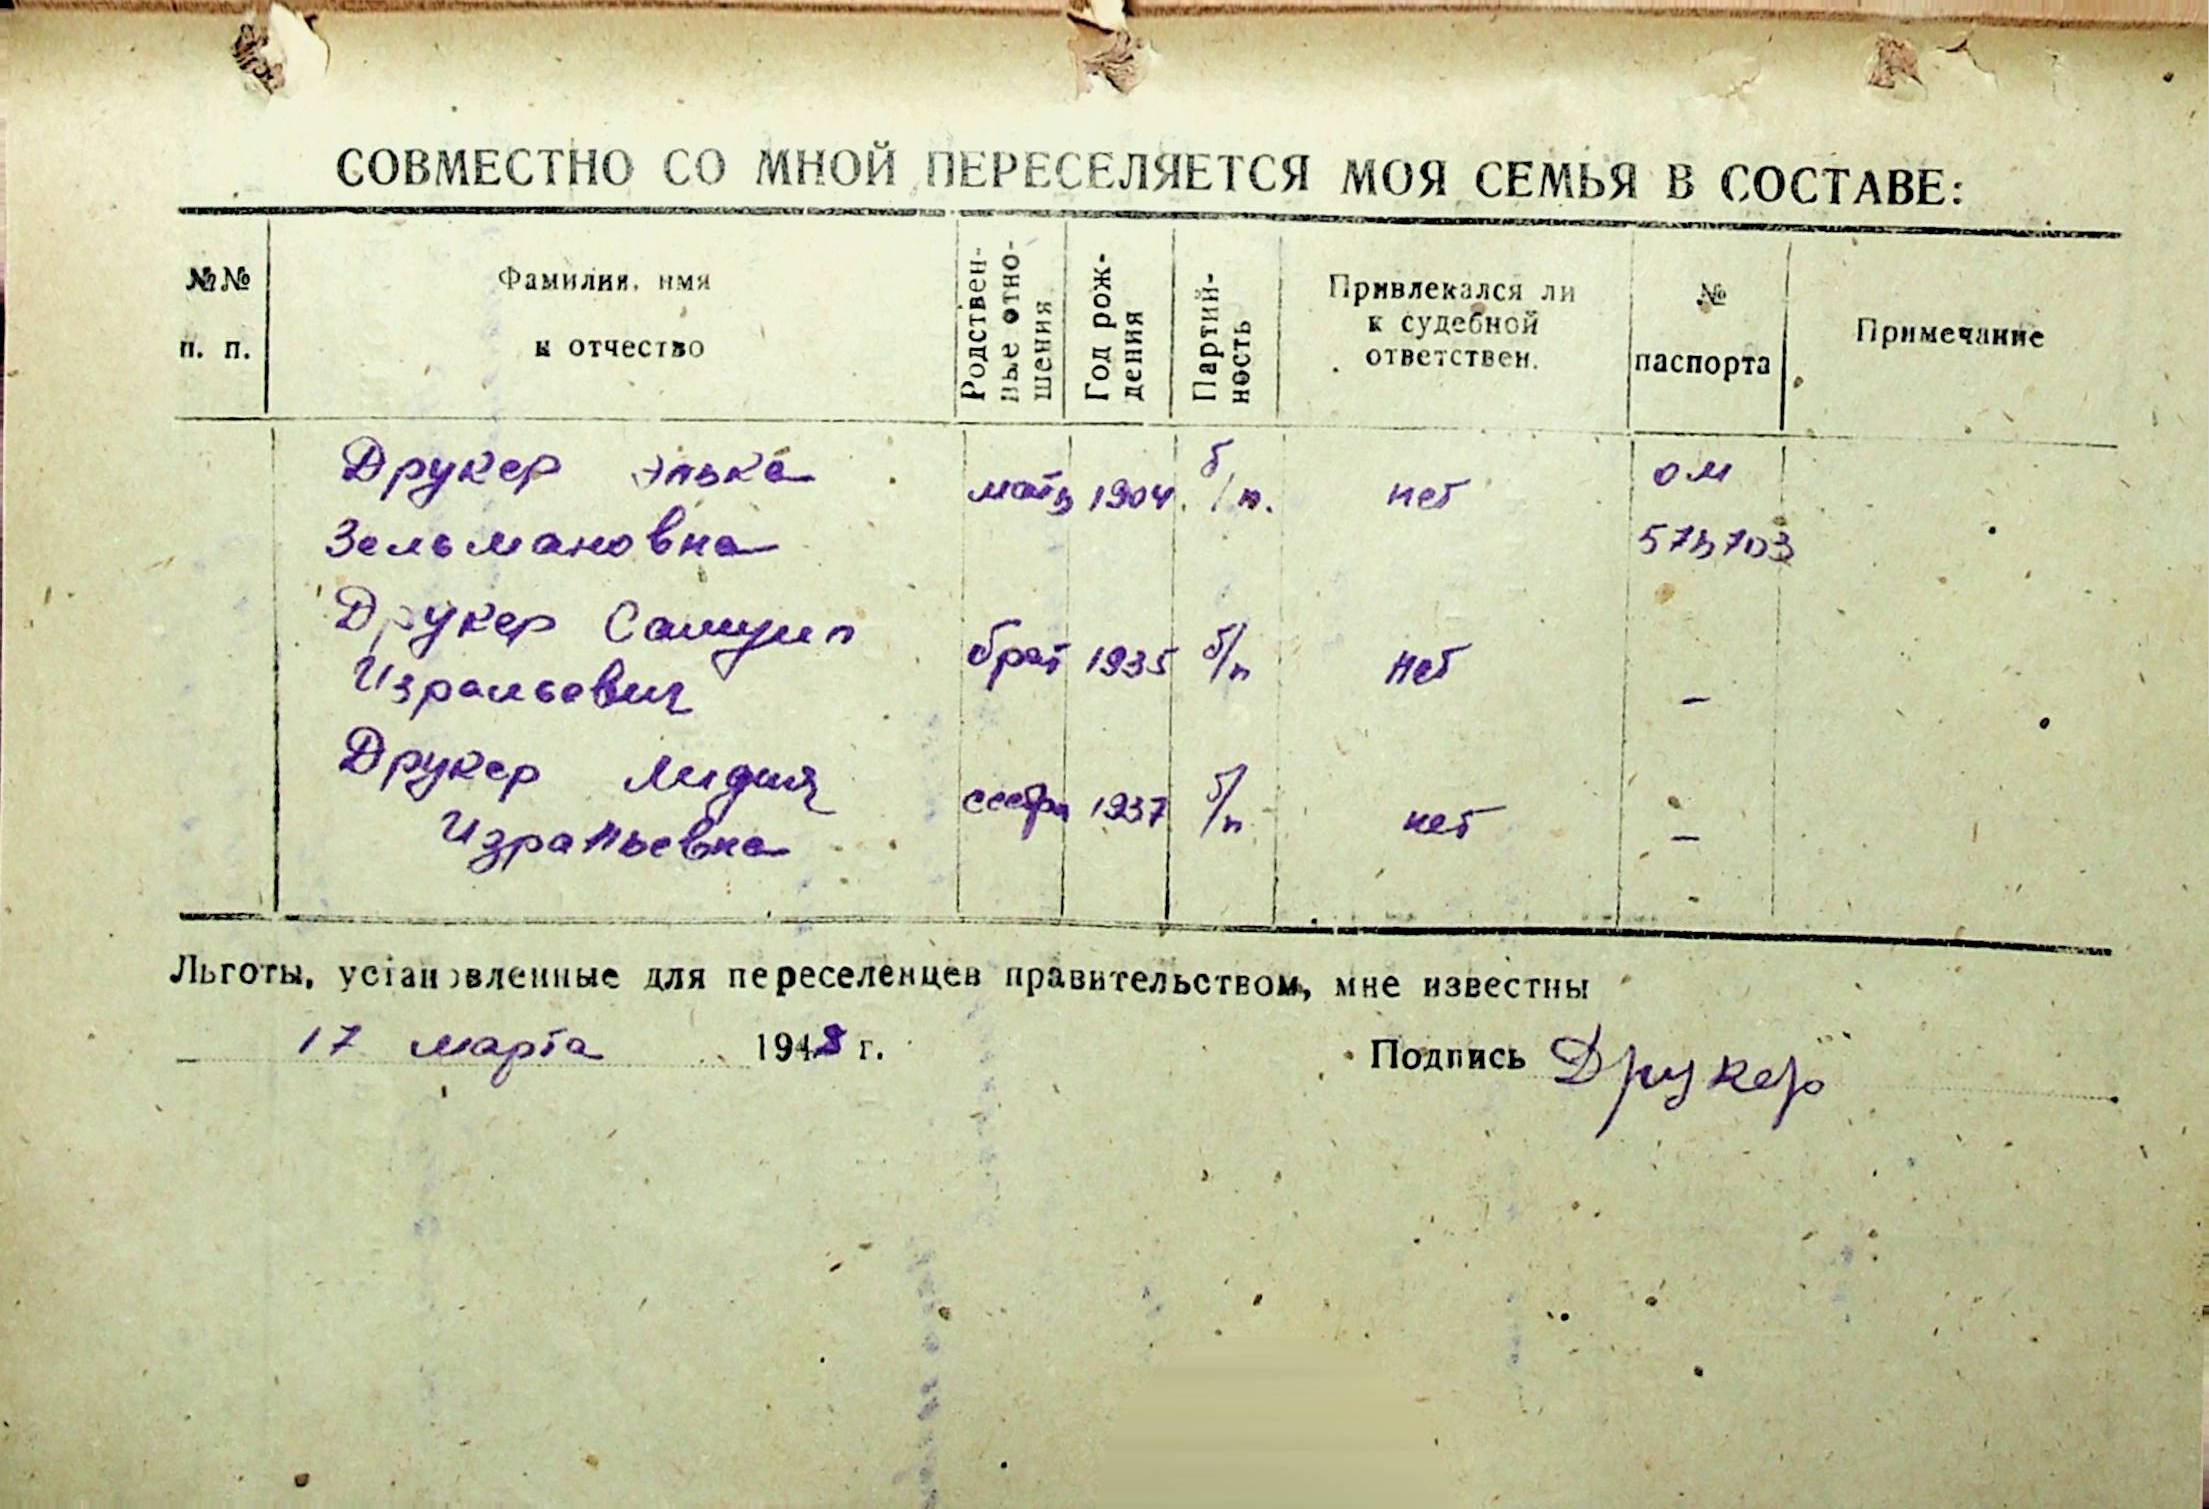 СОВМЕСТНО СО МНОЙ ПЕРЕСЕЛЯЕТСЯ МОЯ СЕМЬЯ В СОСТАВЕ:
№№ п. п.
Фамилия, имя и отчество
Родствен-
ные отно-
шения
Год рож-
дения
Партий-
ность
Привлекался ли
к судебной
ответствен.
№
паспорта
Примечание
Друкер Элька мать 1904. б/п. нет ОМ
Зельмановна
Друкер Самуил брат 1935 б/п нет –
Израильевич
Друкер Лидия сестра 1937 б/п нет –
Израильевна
Льготы, установленные для переселенцев правительством, мне известны
17 марта 1948 г. Подпись Друкер